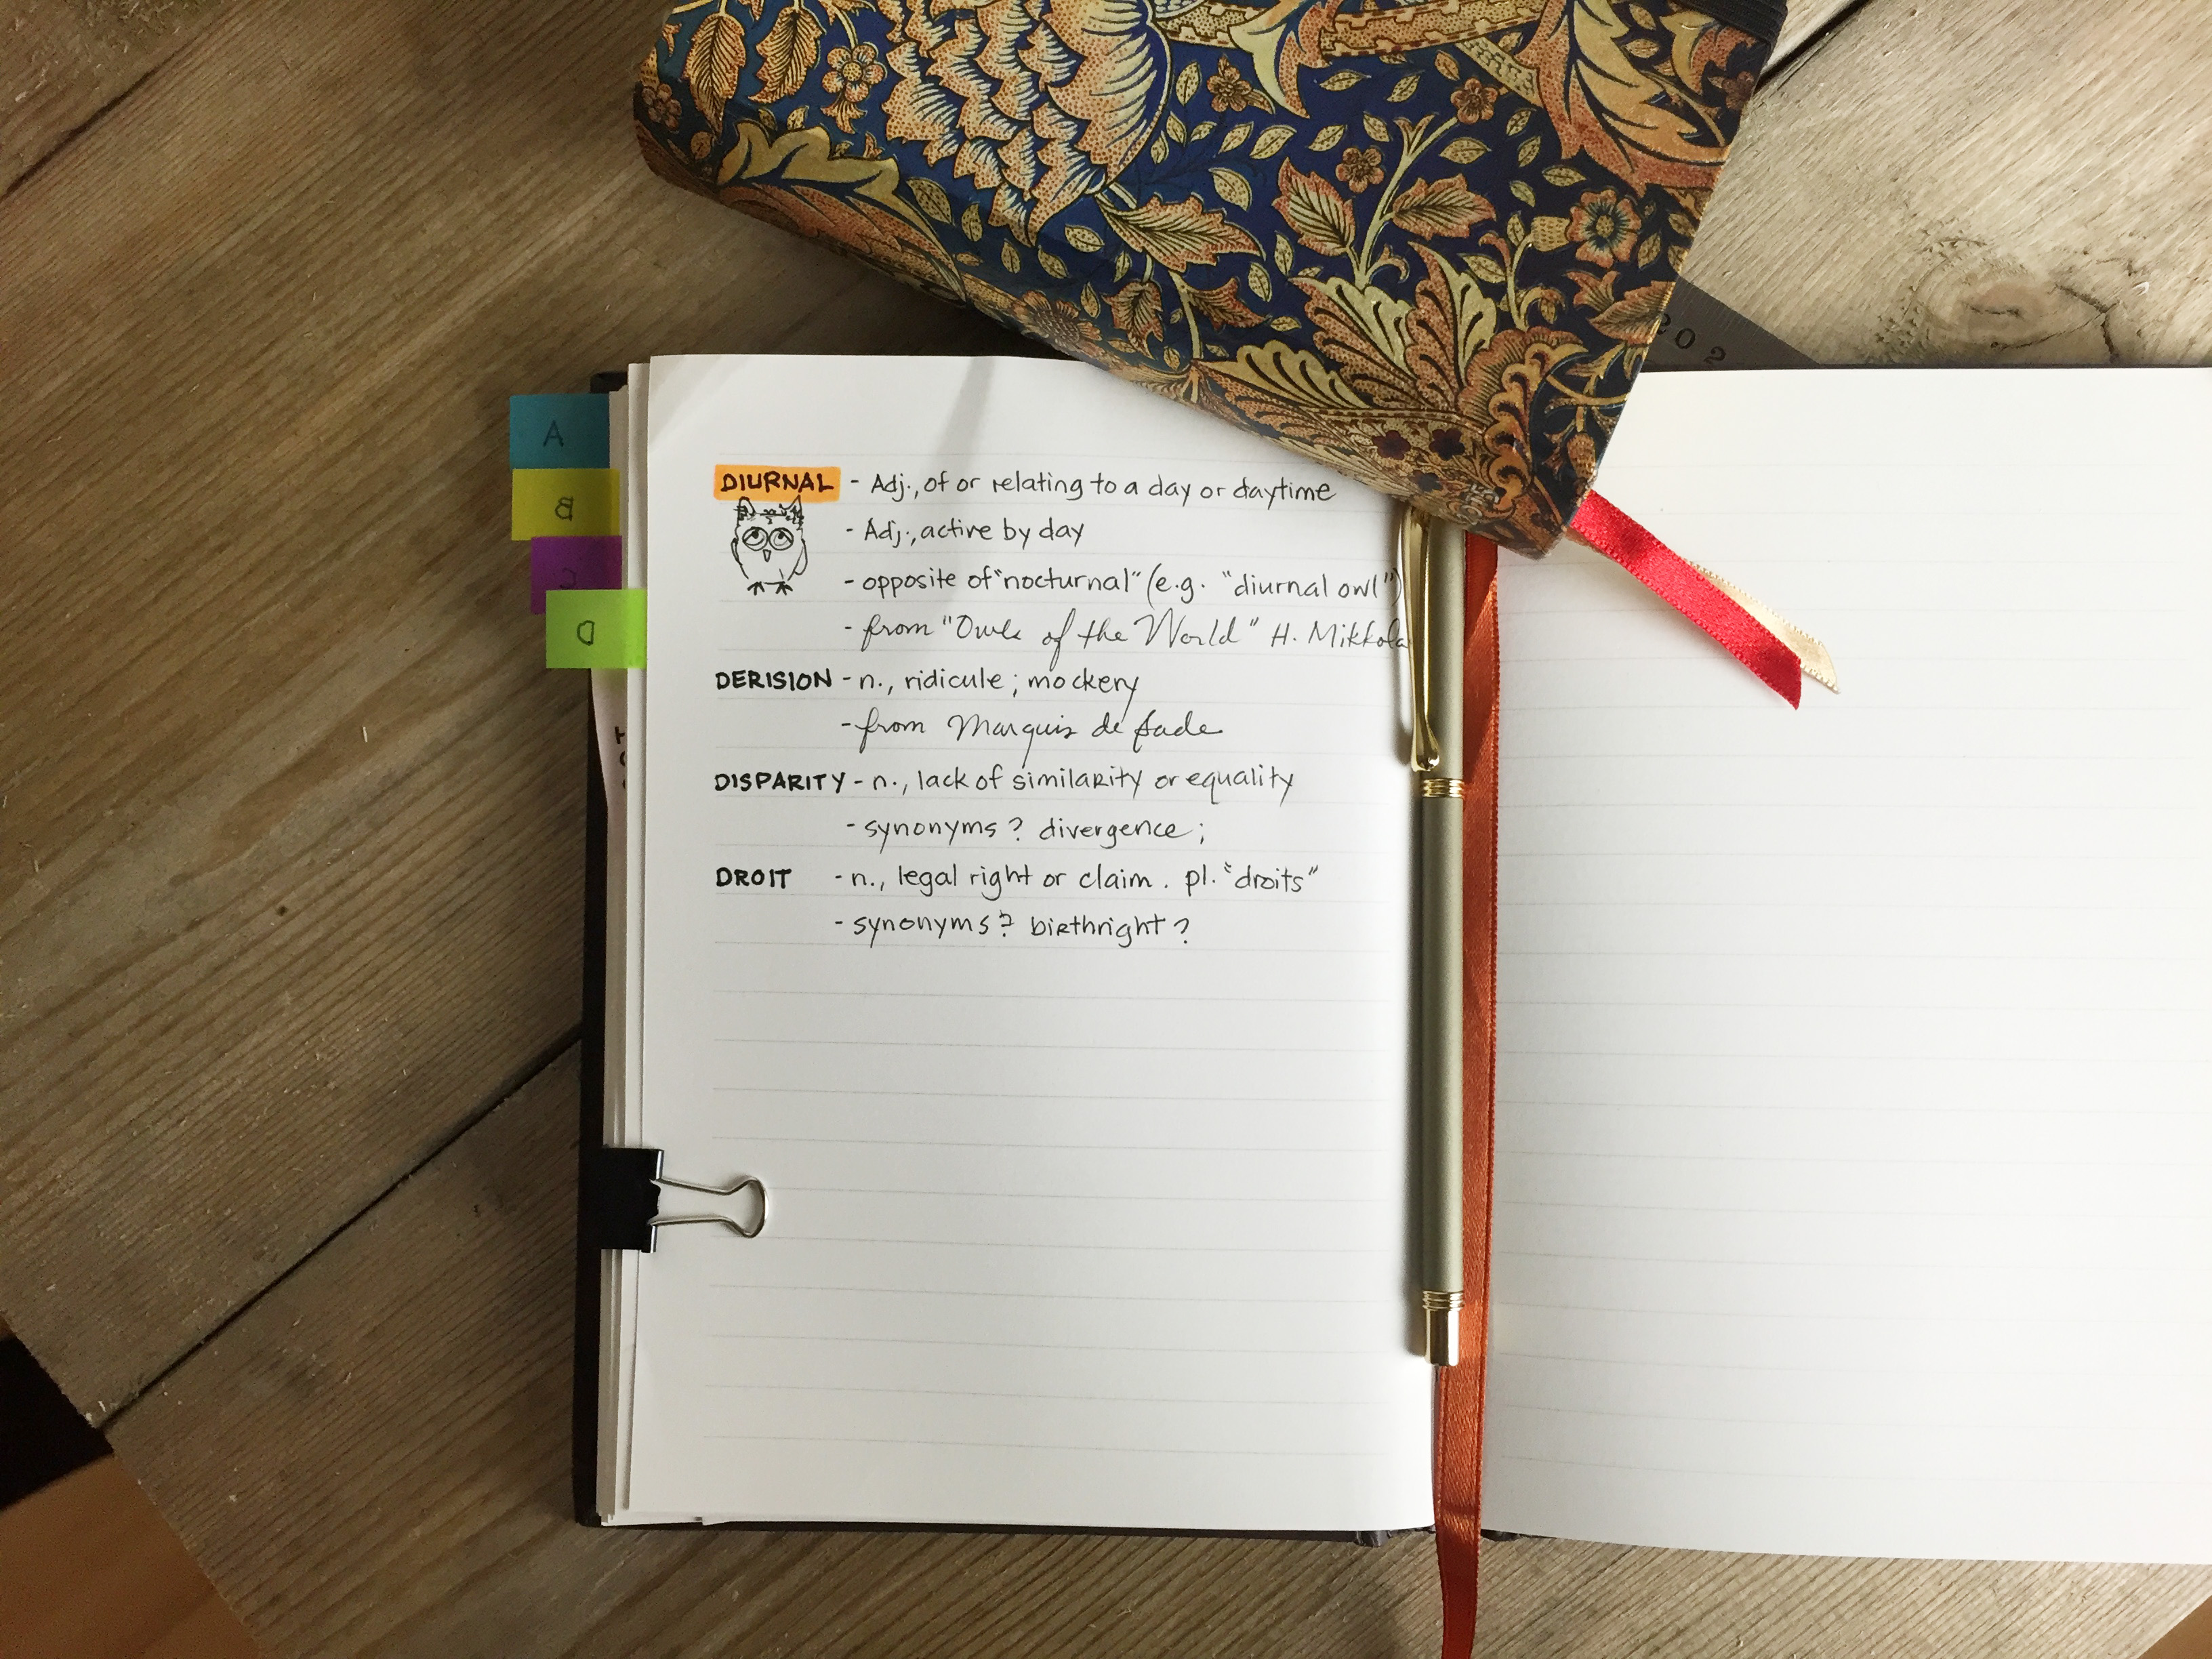 A
B
C
D
DIURNAL - Adj., of or relating to a day or daytime
- Adj., active by day
- opposite of "nocturnal" (e.g. "diurnal owl")
- from "Owls of the World" H. Mikkola
DERISION - n., ridicule; mockery
- from Marquis de Sade
DISPARITY - n., lack of similarity or equality
- synonyms? divergence;
DROIT - n., legal right or claim. pl. "droits"
- synonyms? birthright?
202